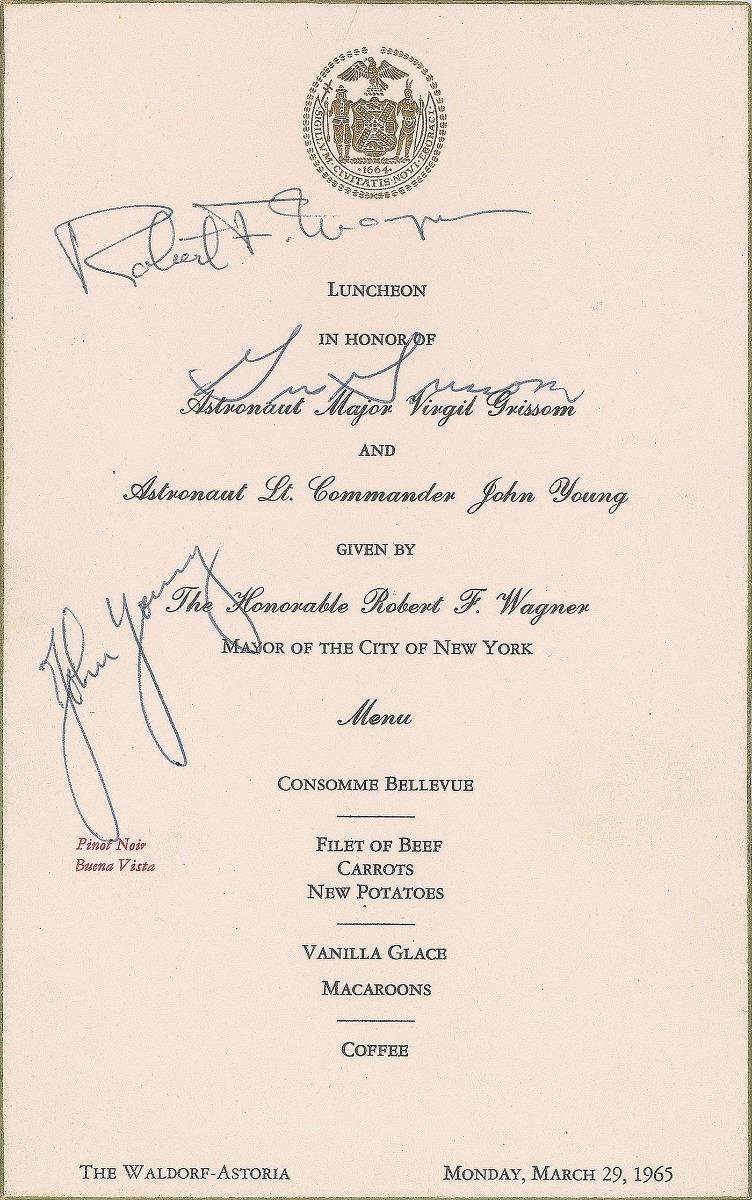 SIGILLVM CIVITATIS NOVI EBORACI
1664
Robert F. Wagner
LUNCHEON
IN HONOR OF
Gus Grissom
Astronaut Major Virgil Grissom
AND
Astronaut Lt. Commander John Young
GIVEN BY
John Young
The Honorable Robert F. Wagner
MAYOR OF THE CITY OF NEW YORK
Menu
CONSOMME BELLEVUE
Pinot Noir
Buena Vista
FILET OF BEEF
CARROTS
NEW POTATOES
VANILLA GLACE
MACAROONS
COFFEE
THE WALDORF-ASTORIA MONDAY, MARCH 29, 1965